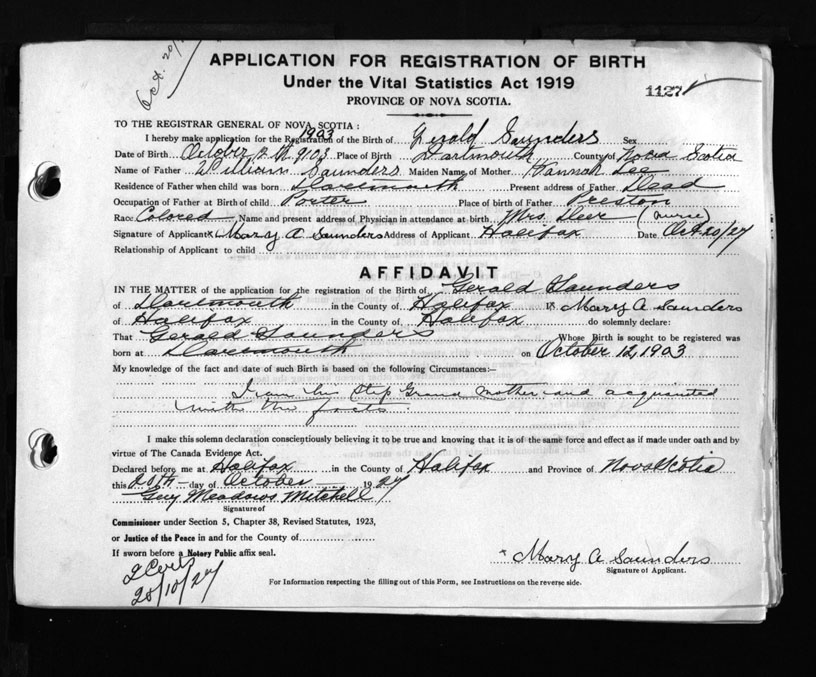 Oct. 20/
APPLICATION FOR REGISTRATION OF BIRTH
Under the Vital Statistics Act 1919
1127
PROVINCE OF NOVA SCOTIA.
TO THE REGISTRAR GENERAL OF NOVA SCOTIA:
1903
I hereby make application for the Registration of the Birth of Gerald Saunders Sex
Date of Birth October 12th 1903 Place of Birth Dartmouth County of Nova Scotia
Name of Father William Saunders Maiden Name of Mother Hannah Lee
Residence of Father when child was born Dartmouth Present address of Father Dead
Occupation of Father at Birth of child Porter Place of birth of Father Preston
Race Colored Name and present address of Physician in attendance at birth Mrs. (nurse)
Signature of Applicant x Mary A Saunders Address of Applicant Halifax Date Oct 20/27
Relationship of Applicant to child
AFFIDAVIT
IN THE MATTER of the application for the registration of the Birth of Gerald Saunders
of Dartmouth in the County of Halifax I x Mary A Saunders
of Halifax in the County of Halifax do solemnly declare:
That Gerald Saunders Whose Birth is sought to be registered was
born at Dartmouth on October 12, 1903
My knowledge of the fact and date of such Birth is based on the following Circumstances:—
I am his Step Grand Mother and acquainted
with the facts.
I make this solemn declaration conscientiously believing it to be true and knowing that it is of the same force and effect as if made under oath and by
virtue of The Canada Evidence Act.
Declared before me at Halifax in the County of Halifax and Province of Nova Scotia
this 20th day of October 1927
Guy Meadows Mitchell
Signature of
Commissioner under Section 5, Chapter 38, Revised Statutes, 1923,
or Justice of the Peace in and for the County of
If sworn before a Notary Public affix seal.
x Mary A Saunders
Signature of Applicant.
2 Certs
28/10/27
For Information respecting the filling out of this Form, see Instructions on the reverse side.